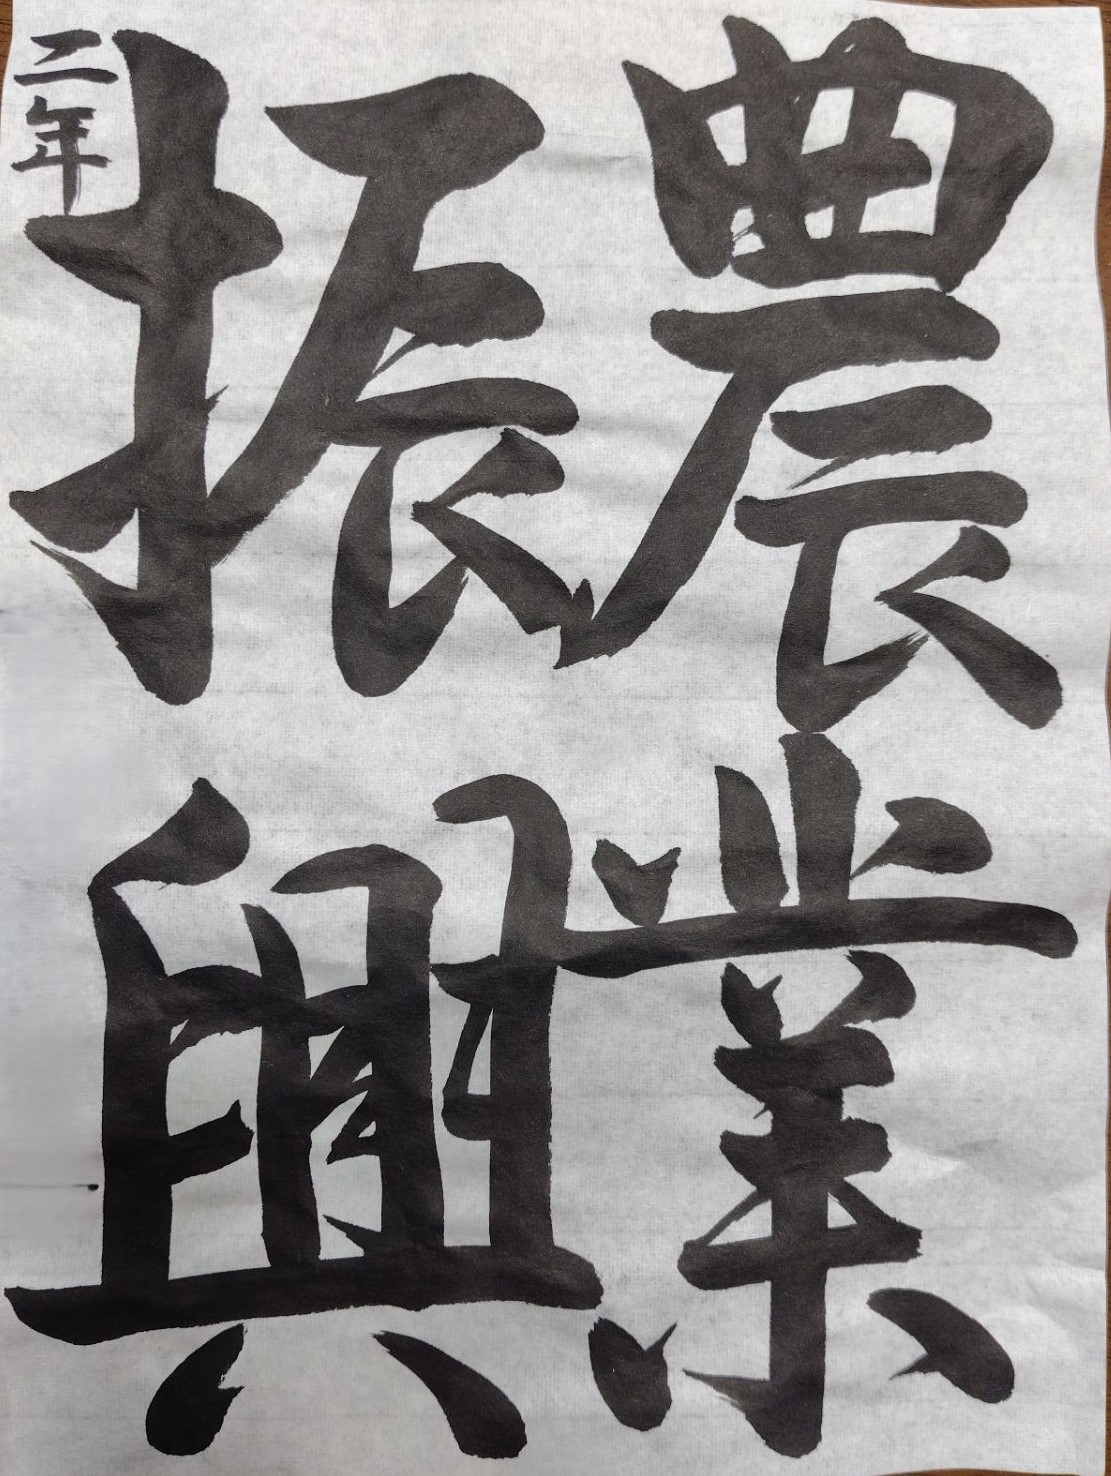 農業
振興
二年